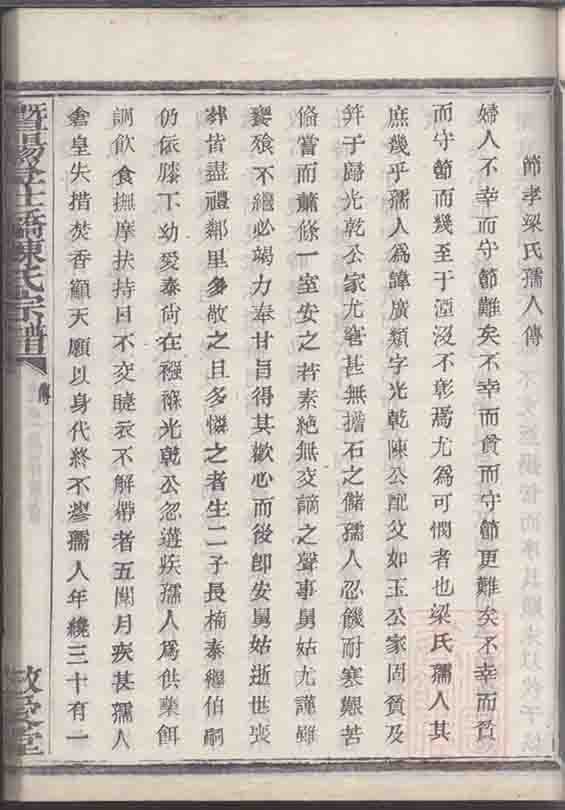 節孝梁氏孺人傳
婦人不幸而守節難矣不幸而貧而守節更難矣不幸而貧
而守節而幾至于湮沒不彰焉尤爲可憫者也梁氏孺人其
庶幾乎孺人爲諱廣類字光乾陳公配父如玉公家固貧及
笄于歸光乾公家尤窘甚無擔石之儲孺人忍饑耐寒艱苦
俻嘗而蕭條一室安之若素絕無交謫之聲事舅姑尤謹雖
饔飧不繼必竭力奉甘旨得其歡心而後卽安舅姑逝世喪
葬皆盡禮鄰里多敬之且多憐之者生二子長楠泰繼伯嗣
仍依膝下幼愛泰尙在襁褓光乾公忽遘疾孺人爲供藥餌
調飲食撫摩扶持目不交睫衣不解帶者五閱月疾甚孺人
倉皇失措焚香籲天願以身代終不瘳孺人年纔三十有一
暨陽 陳氏宗譜
傳
敬愛堂